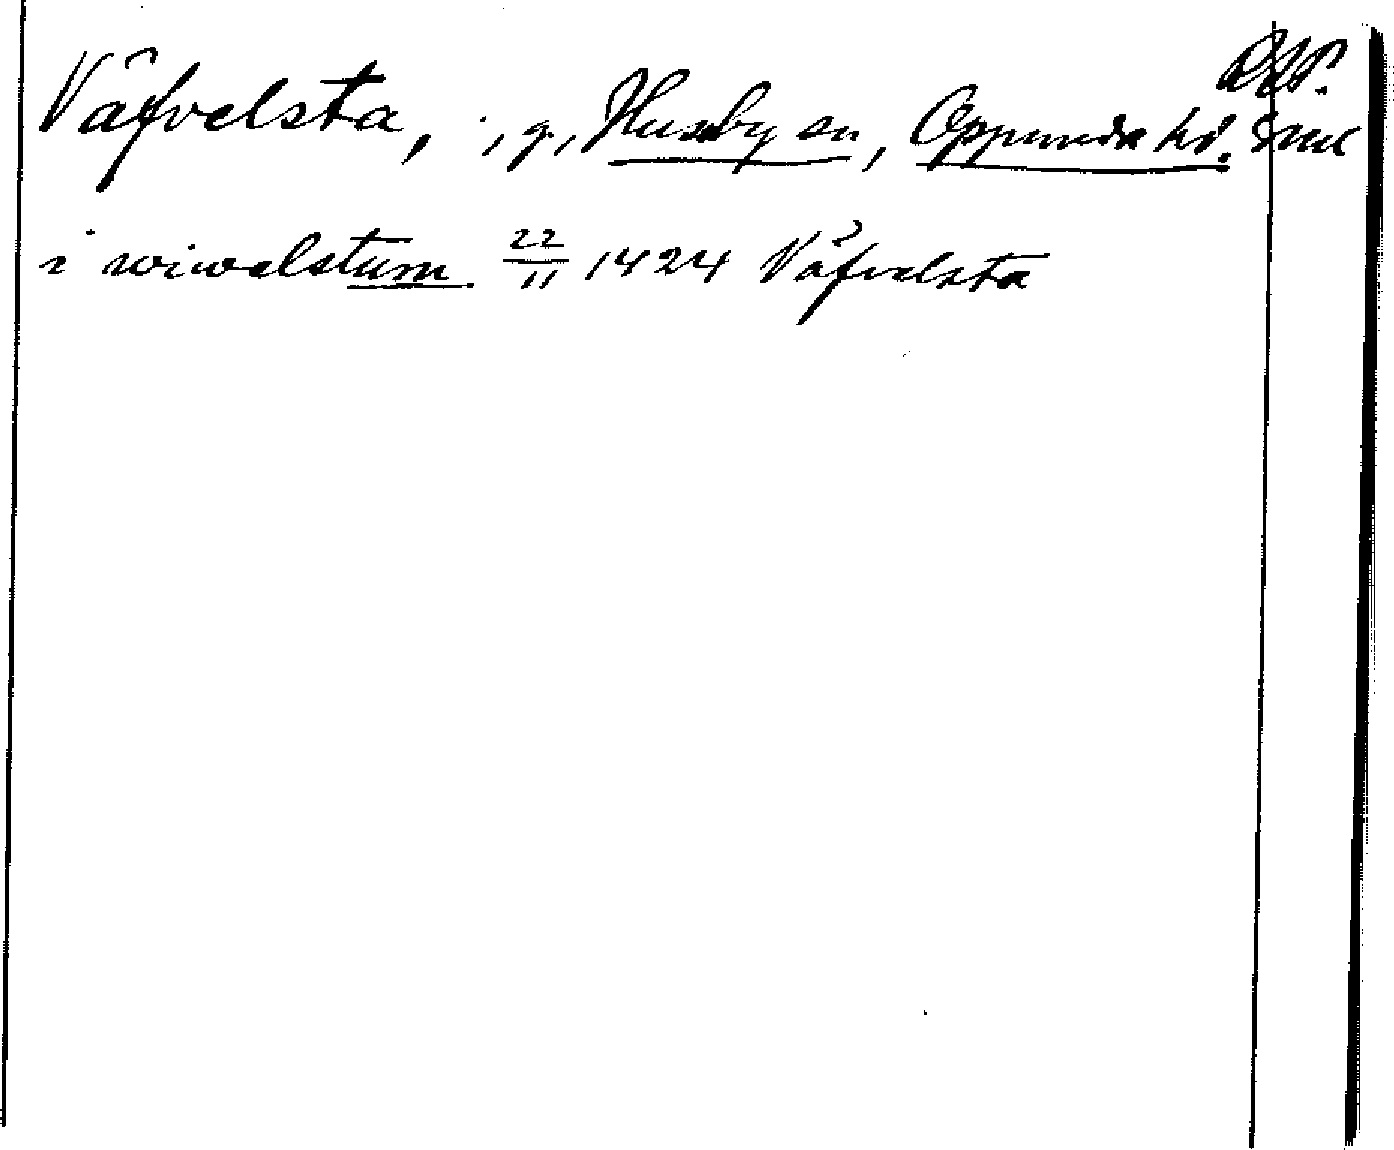 Väfvelsta, i, g, Husby sn, Oppunda hd. Sml
i wiwalstum 22/11 1424 Väfvelsta